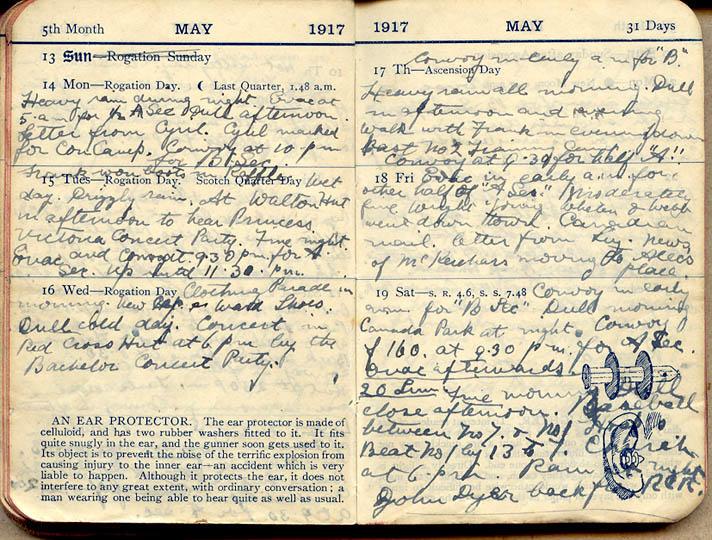 5th Month MAY 1917
13 Sun—Rogation Sunday
14 Mon—Rogation Day. ( Last Quarter, 1.48 a.m.
Heavy rain during night. Evac at
5 a.m. for A Sec Dull afternoon.
letter from Cyril. Cyril marked
for Con Camp. Convoy at 10 p m
for B Sec.
15 Tues—Rogation Day. Scotch Quarter Day Wet
day. Drizzly rain. At Walton Hut
in afternoon to hear Princess
Victoria Concert Party. Fine night
Evac and Convoy 9.30 p.m. for A
Sec. Up until 11.30 p.m.
16 Wed—Rogation Day Clothing Parade in
morning. New cap & Shoes.
Dull cold day. Concert in
Red Cross Hut at 6 p m by the
Bachelor Concert Party.
AN EAR PROTECTOR. The ear protector is made of
celluloid, and has two rubber washers fitted to it. It fits
quite snugly in the ear, and the gunner soon gets used to it.
Its object is to prevent the noise of the terrific explosion from
causing injury to the inner ear—an accident which is very
liable to happen. Although it protects the ear, it does not
interfere to any great extent, with ordinary conversation; a
man wearing one being able to hear quite as well as usual.
1917 MAY 31 Days
Convoy in early a m for "B."
17 Th—Ascension Day
Heavy rain all morning. Dull
in afternoon and
Walk with Frank in evening down
past No 2 Training Camp
Convoy at 9.30 for half "A"
18 Fri Evac in early a.m. for
other half of "A Sec" Moderately
fine. Wright Young Whelan & Webb
went down town. Canadian
mail. letter from news
of moving to
place.
19 Sat—s. r. 4.6, s. s. 7.48 Convoy in early
morn for "B Sec" Dull morning
Canada Park at night. Convoy
of 160. at 9.30 p m. for A Sec.
Evac afterwards
20 Sun Fine morning Dull
close afternoon. Baseball
between No 7. & No 1
Beat No 1 by 13 to 7. Church
at 6 p.m. Rain at night
John Dyer back from